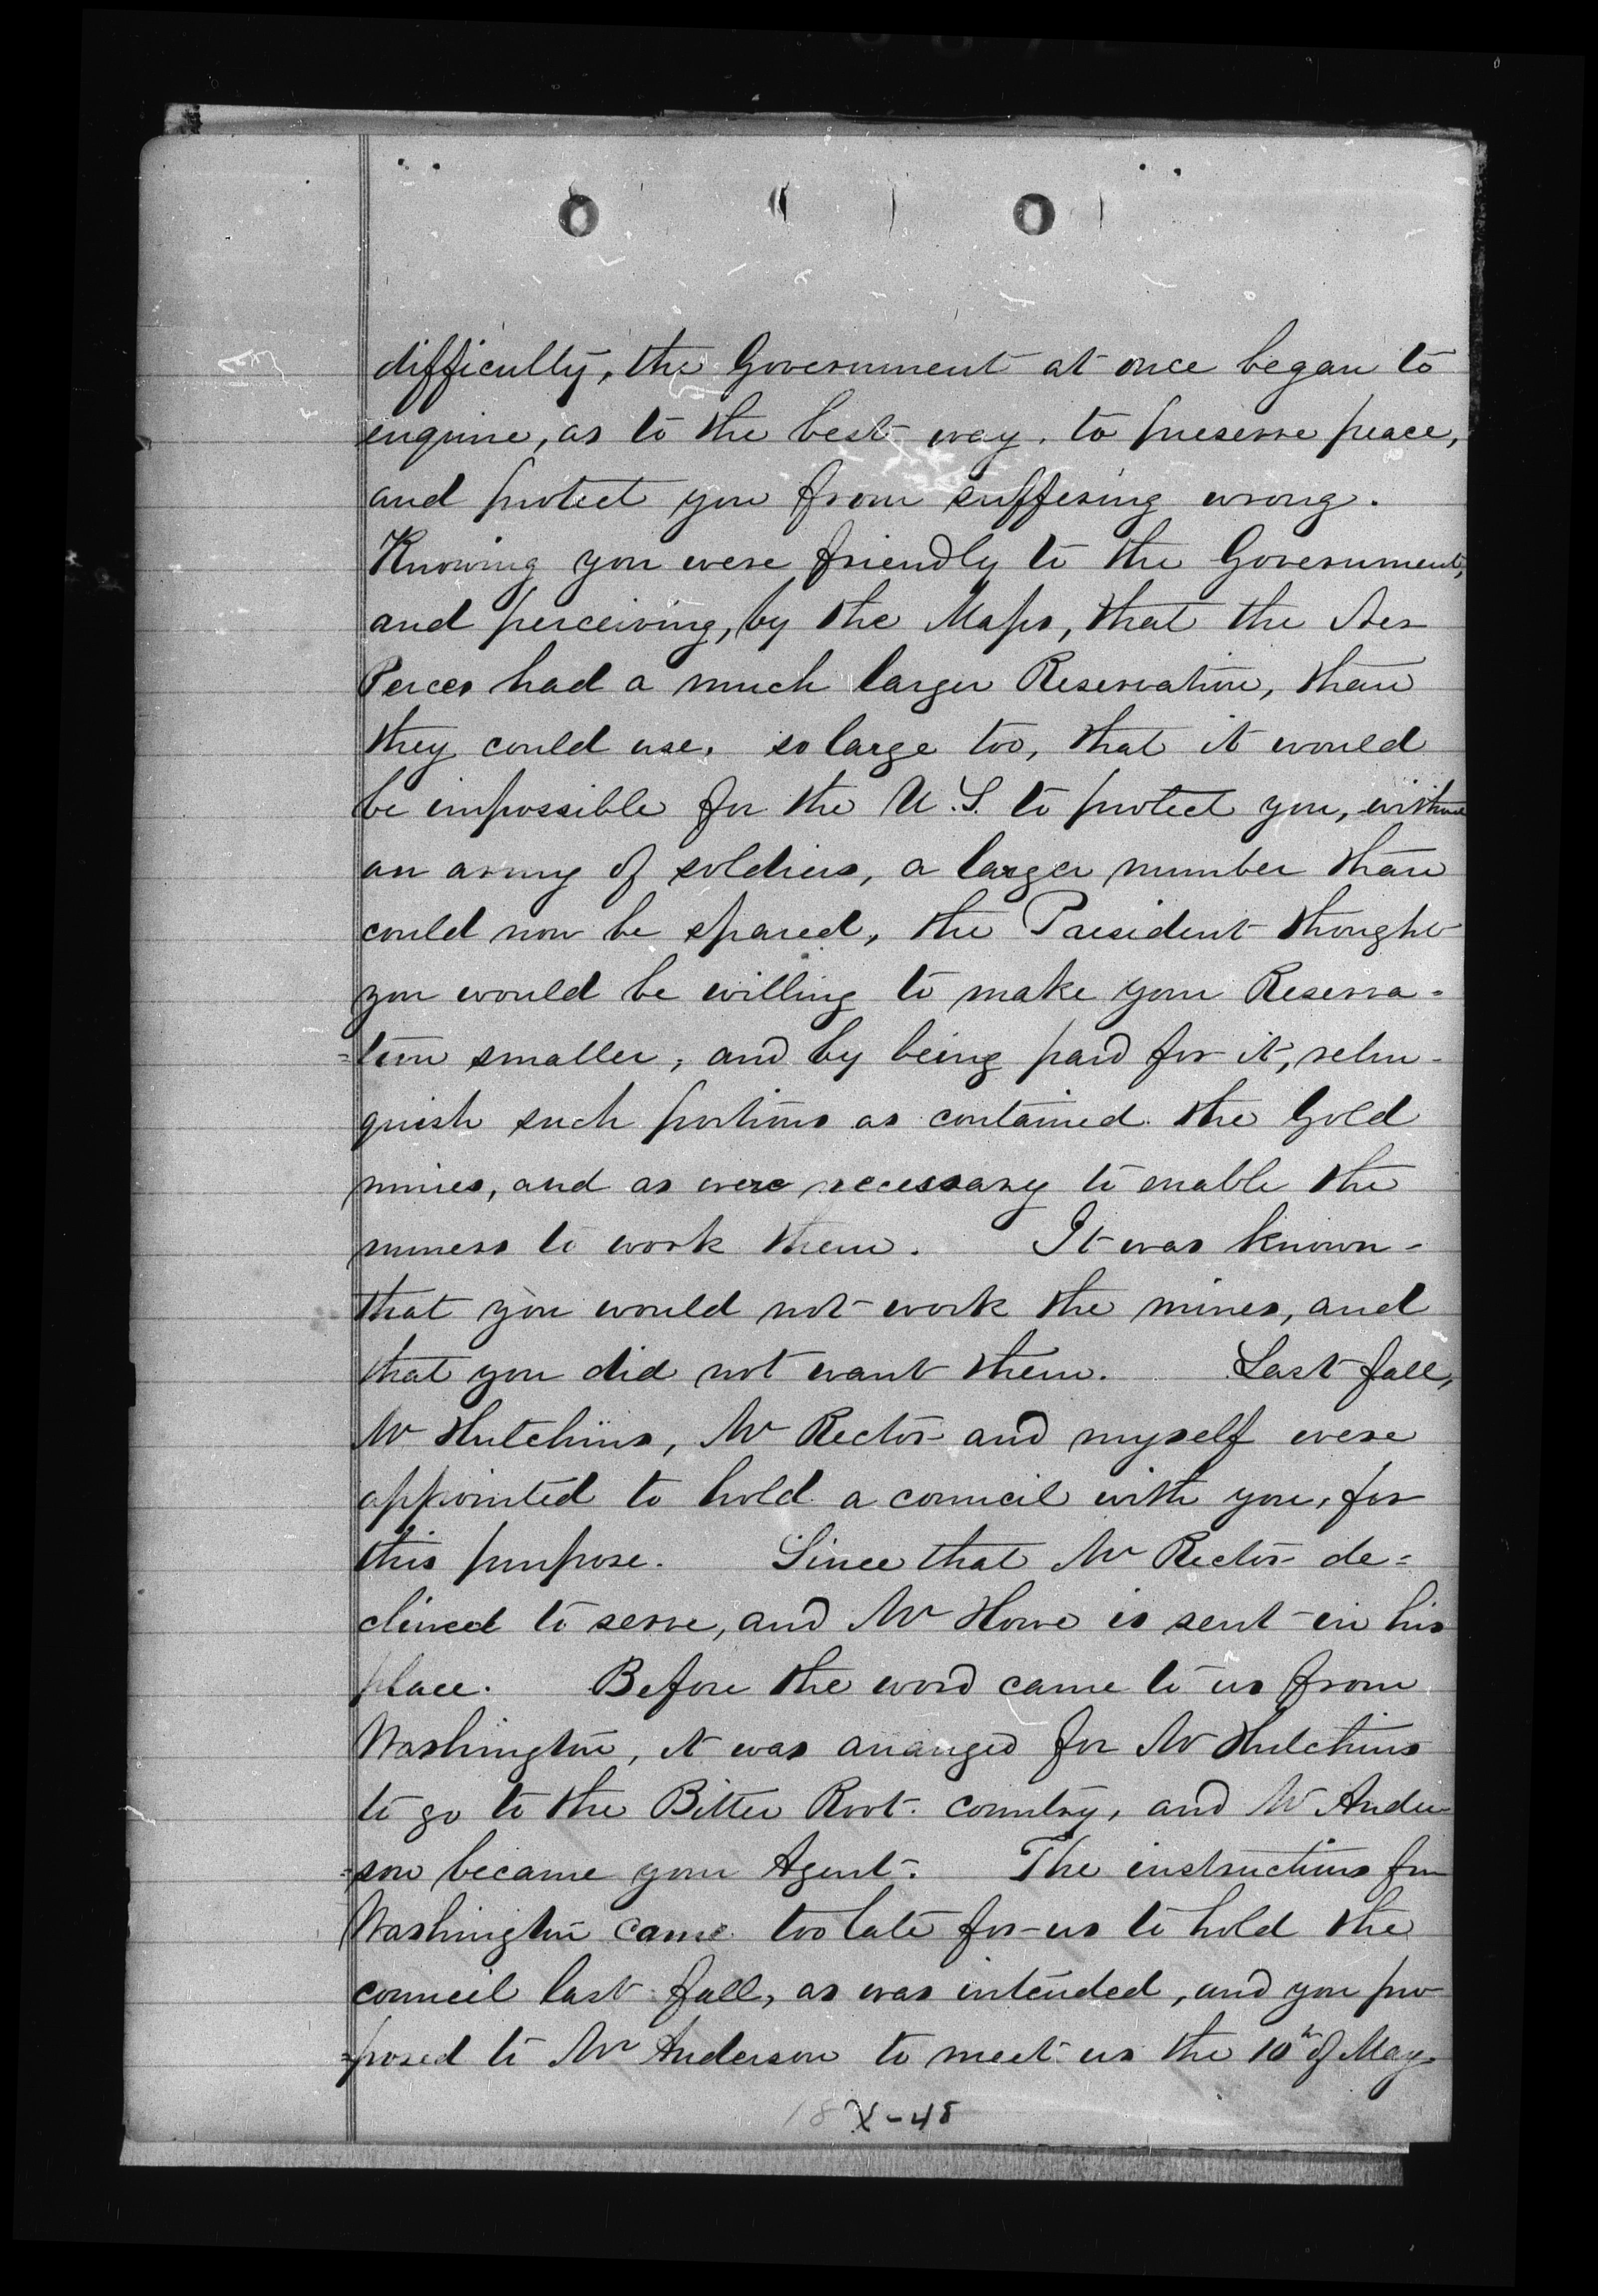 difficulty, the Government at once began to
enquire, as to the best way, to preserve peace,
and protect you from suffering wrong.
Knowing you were friendly to the Government,
and perceiving, by the Maps, that the Nes
Perces had a much larger Reservation, than
they could use, so large too, that it would
be impossible for the U.S. to protect you, without
an army of soldiers, a larger number than
could now be spared, the President thought
you would be willing to make your Reserva-
=tion smaller, and by being paid for it, relin-
quish such portions as contained the Gold
mines, and as were necessary to enable the
miners to work them. It was known-
that you would not work the mines, and
that you did not want them. Last fall,
Mr Hutchins, Mr Rector and myself were
appointed to hold a council with you, for
this purpose. Since that Mr Rector de=
clined to serve, and Mr Howe is sent in his
place. Before the word came to us from
Washington, it was arranged for Mr Hutchins
to go to the Bitter Root country, and Mr Ander
=son became your Agent. The instructions from
Washington came too late for us to hold the
council last fall, as was intended, and you pro
=posed to Mr Anderson to meet us the 10th of May.
18 X-48